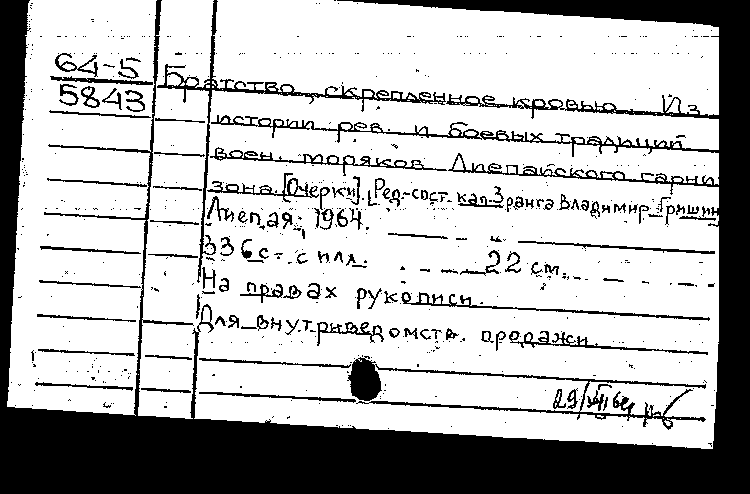 64-5
5843
Братство, скрепленное кровью. Из
истории рев. и боевых традиций
воен. моряков Лиепайского гарни-
зона. [Очерки]. Ред-сост. кап. 3 ранга Владимир Гришин
Лиепая, 1964.
336 с. с илл. 22 см.
На правах рукописи.
Для внутриведомств. продажи.